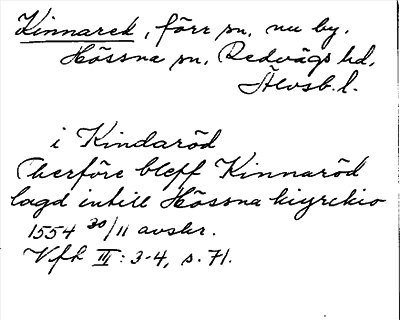 Kinnared, förr sn, nu by.
Hössna sn, Redvägs hd,
Älvsb. l.
i Kindaröd
Therföre bleff Kinnaröd
lagd intill Hössna kiyrckio
1554 30/11 avskr.
Vfh III: 3-4, s. 71.